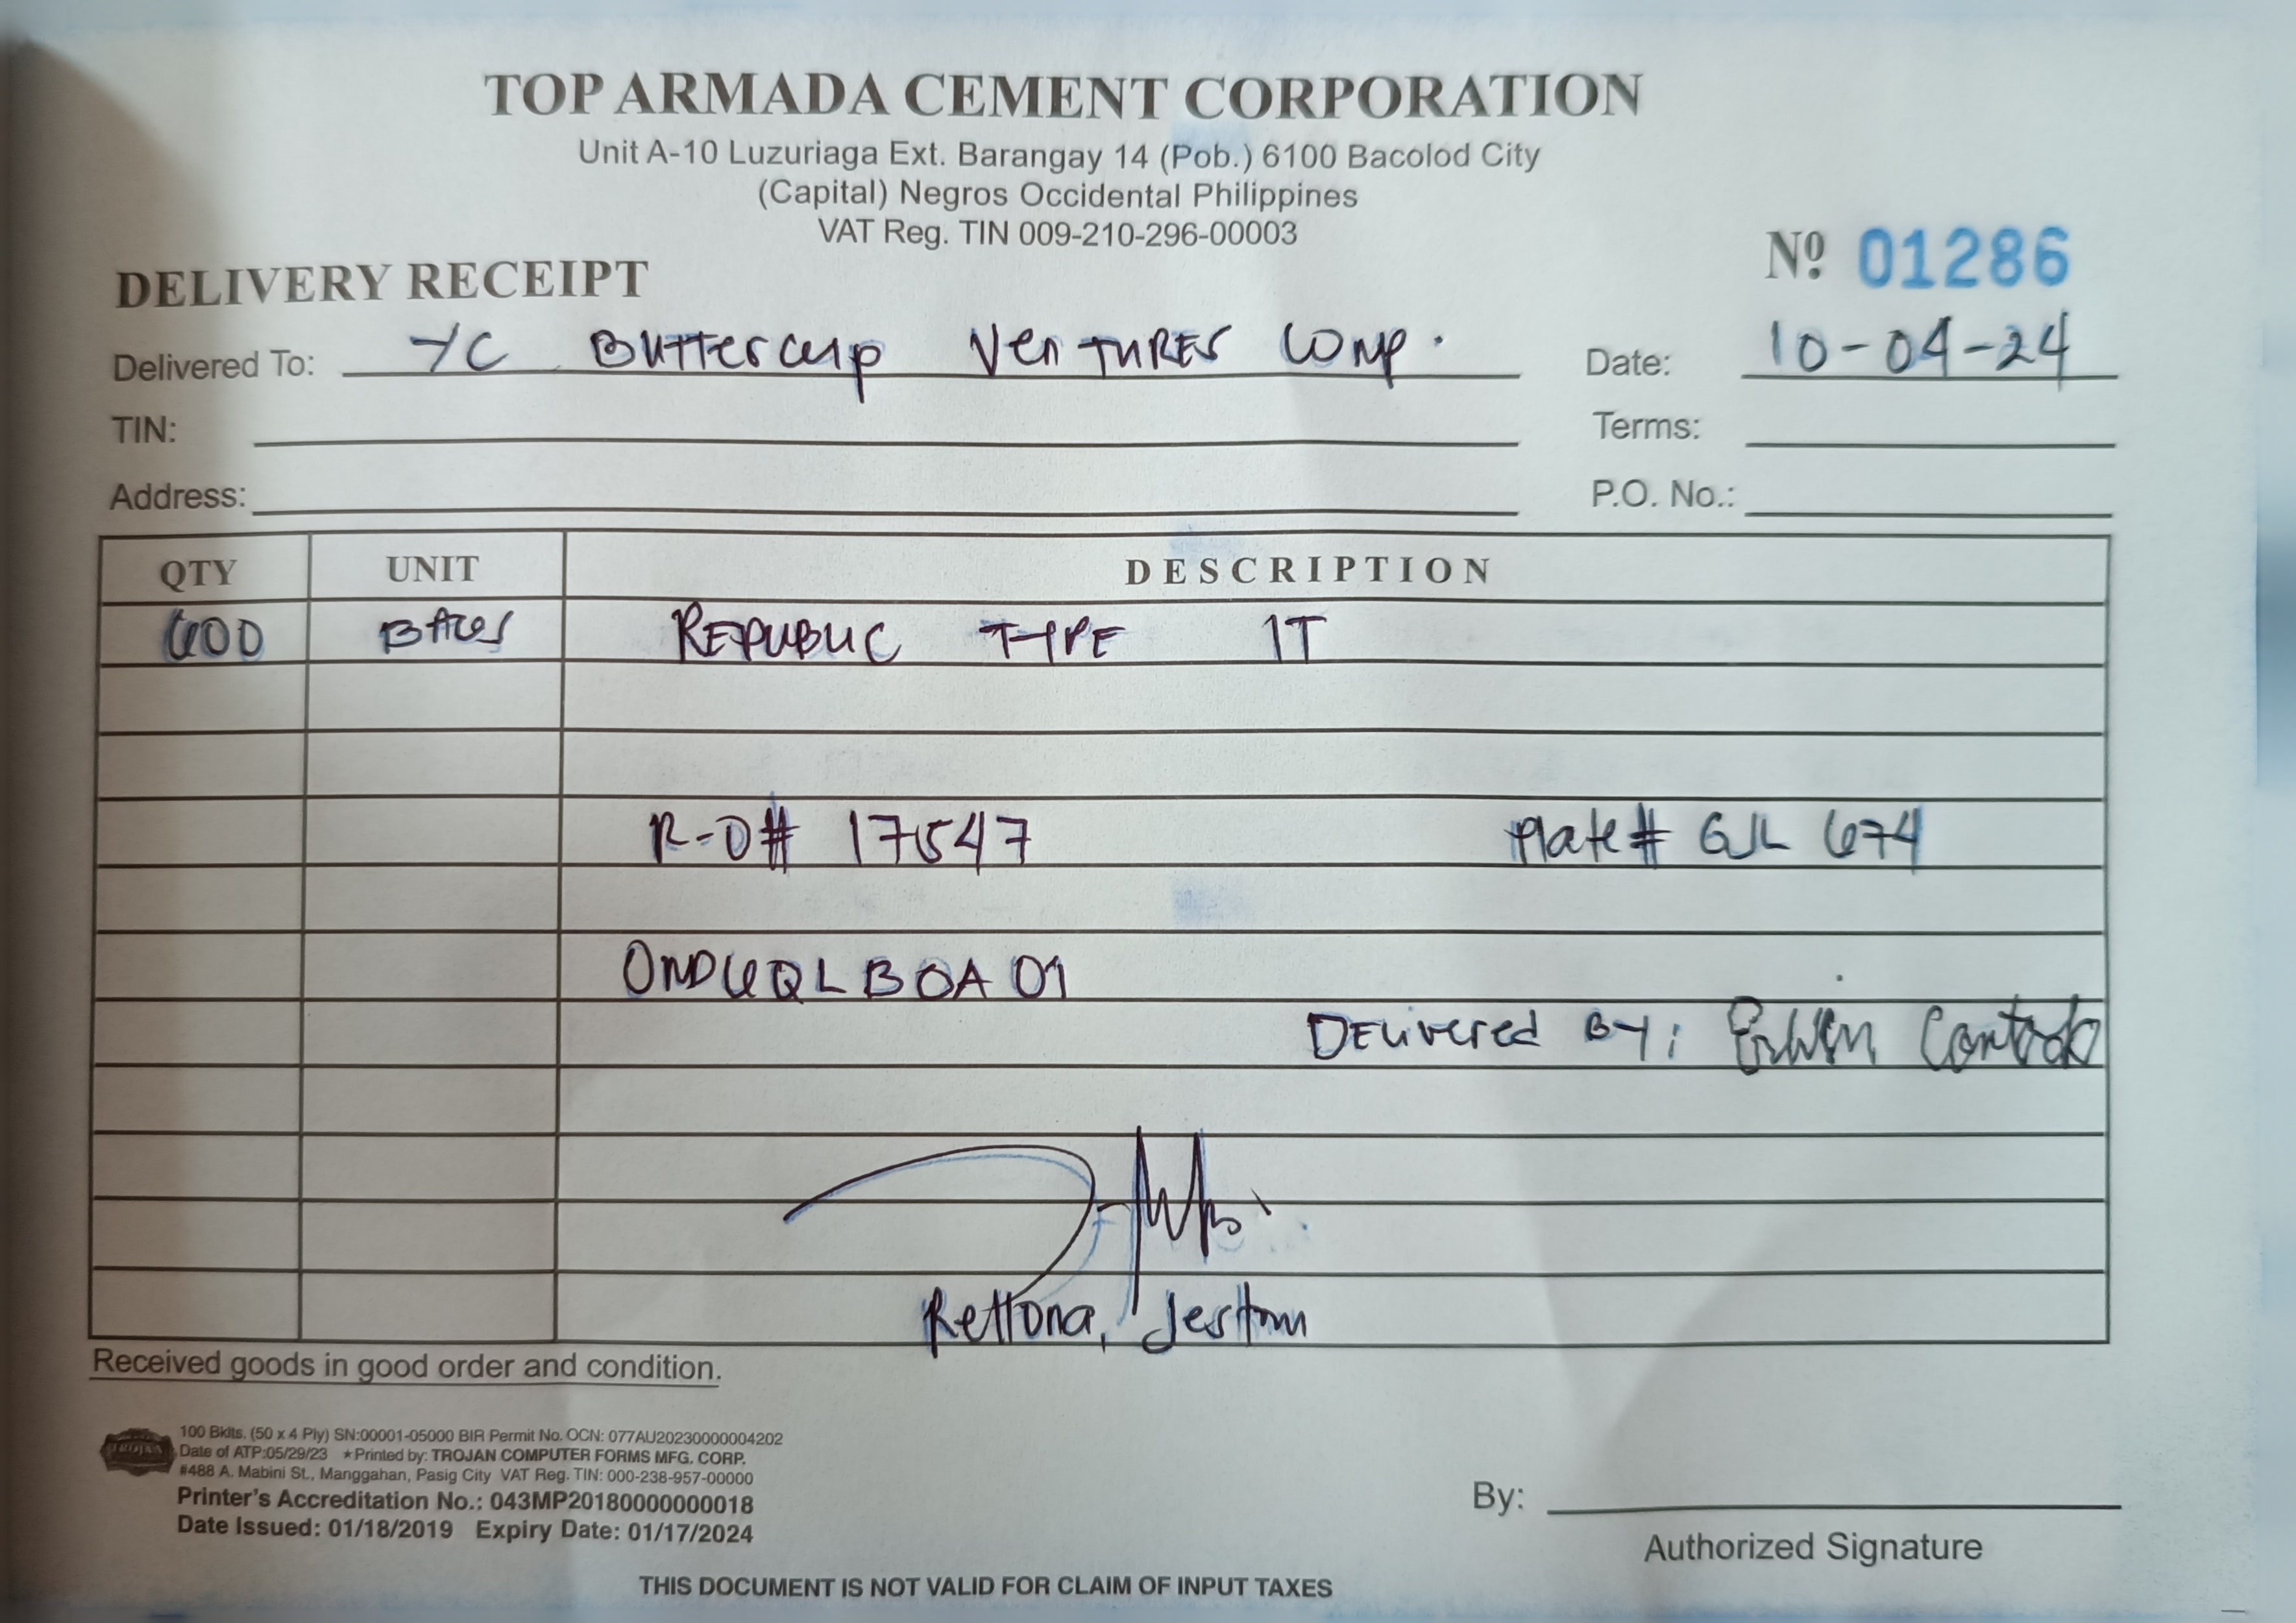 TOP ARMADA CEMENT CORPORATION
Unit A-10 Luzuriaga Ext. Barangay 14 (Pob.) 6100 Bacolod City
(Capital) Negros Occidental Philippines
VAT Reg. TIN 009-210-296-00003
Nº 01286
DELIVERY RECEIPT
Delivered To: YC Buttercup VENTURES Comp. Date: 10-04-24
TIN: Terms:
Address: P.O. No.:
QTY UNIT DESCRIPTION
600 BAGS REPUBLIC TYPE 1T
R-O# 17547 Plate# GJL 674
OND6QLBOA01
DELIVERED BY: Erwin
Rettona, Jestom
Received goods in good order and condition.
TROJAN
100 Bklts. (50 x 4 Ply) SN:00001-05000 BIR Permit No. OCN: 077AU20230000004202
Date of ATP:05/29/23 ★Printed by: TROJAN COMPUTER FORMS MFG. CORP.
#488 A. Mabini St., Manggahan, Pasig City VAT Reg. TIN: 000-238-957-00000
Printer's Accreditation No.: 043MP20180000000018
Date Issued: 01/18/2019 Expiry Date: 01/17/2024
By:
Authorized Signature
THIS DOCUMENT IS NOT VALID FOR CLAIM OF INPUT TAXES